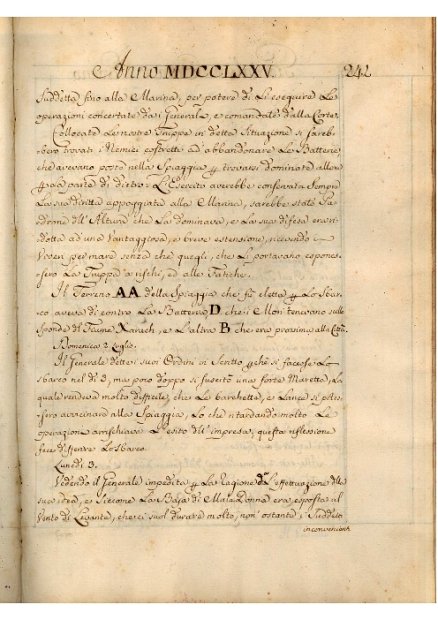 Anno MDCCLXXV. 242
Suddetta sino alla Marina, per potere di Lì eseguire Le
operazioni concertate da i Generali, e comandate dalla Corte.
Collocate Le nostre Truppe in detta Situazione si sareb-
bero trovati i Nemici costretti ad abbandonare Le Batterie,
che avevano posto nella Spiaggia trovarsi dominate allora
dalla parte di dietro: L'Esercito averebbe conservata sempre
La sua diritta appoggiata alla Marina, sarebbe stato Pa-
drone dell'Altura che La dominava, e La sua difesa era ri-
dotta ad una vantaggiosa, e breve estensione, ricevendo i
Viveri per mare senza che quegli, che Li portavano espones-
sero La Truppa a rischi, ed alle Fatiche.
Il Terreno AA della Spiaggia che fù eletta Lo Sbar-
co aveva di contro La Batteria D che i Mori tenevano sulle
Sponde del Fiume Xarach, e L'altra B che era prossima alla Città.
Domenica 2 Luglio.
Il Generale dette i suoi Ordini in Scritto si facesse Lo
Sbarco nel dì 3, ma poco doppo si suscitò una forte Maretta, La
quale rendeva molto difficile, che Le barchette, e Lance si potes-
sero avvicinare alla Spiaggia, Lo che ritardando molto Le
operazioni arrischiava L'esito dell'impresa; questa riflessione
fece differire Lo Sbarco.
Lunedì 3.
Vedendo il Generale impedito La Cagione di L'effettuazione della
sua idea, e siccome La Baja di Mala Donna era esposta al
Vento di Levante, che ci suol durare molto, non ostante i Suddetti
inconvenienti